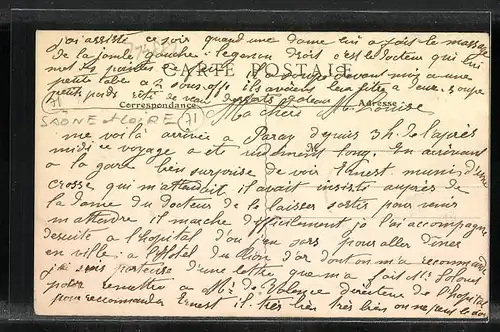 j'ai assisté ce soir quand une dame lui a fait le massage
de la jambe gauche le genou droit c'est le docteur qui lui
met les pointes de feu
CARTE POSTALE
devant moi a une
petite table a 2 ils avaient leur soupe
petits pois roti de veau
Correspondance
Adresse
Ma chere Louise
SAONE & LOIRE (71)
me voilà arrivée a Paray depuis 3h. de l'après
midi ce voyage a été rudement long. En arrivant
M
a la gare bien surprise de voir Ernest muni d'une
crosse qui m'attendait, il avait insisté auprès de
la dame du docteur de le laisser sortir pour venir
m'attendre il marche difficilement je l'ai accompagné
desuite a l'hopital d'ou j'en sors pour aller diner
en ville a l'Hotel du Lion d'or dont on m'a recommandé
j'ai suis porteuse d'une lettre que m'a fait
pour remettre a Mr de Valence directeur de l'hopital
pour recommander Ernest il très bien on ne peut le